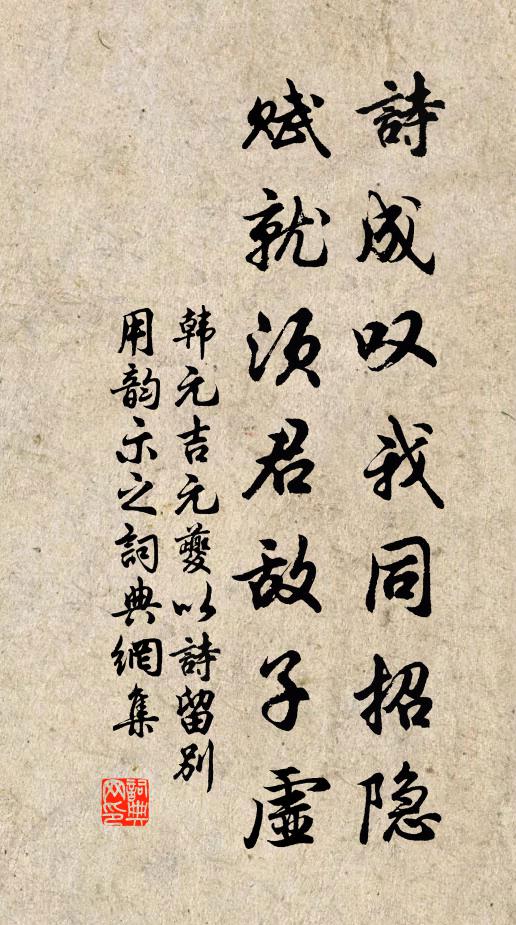 詩成叹我同招隐
赋就须君敌子虛
韩元吉元夔以詩留别
用韵示之詞典網集
詞典网印